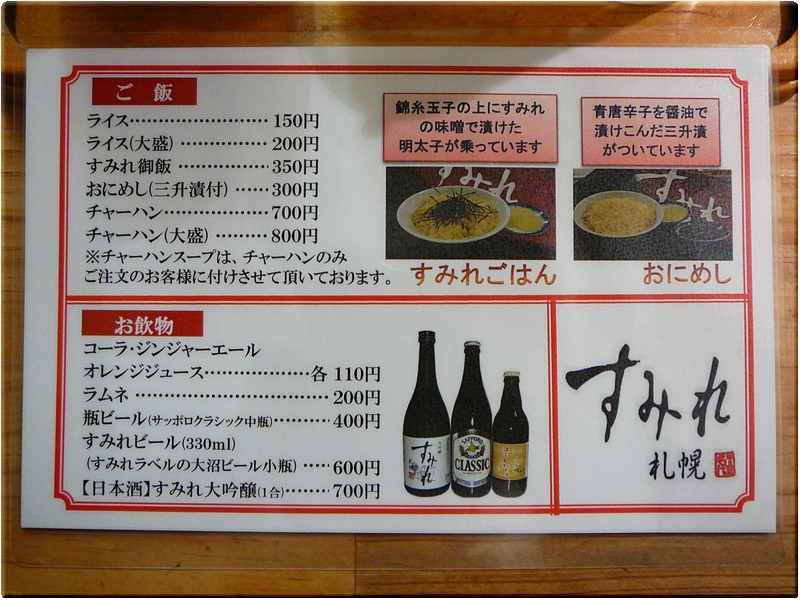 ご飯
ライス……………………150円
ライス(大盛)……………200円
すみれ御飯……………350円
おにめし(三升漬付)……300円
チャーハン………………700円
チャーハン(大盛)………800円
※チャーハンスープは、チャーハンのみ
ご注文のお客様に付けさせて頂いております。
錦糸玉子の上にすみれ
の味噌で漬けた
明太子が乗っています
すみれ
すみれごはん
青唐辛子を醤油で
漬けこんだ三升漬
がついています
すみれ
おにめし
お飲物
コーラ・ジンジャーエール
オレンジジュース………………各 110円
ラムネ……………………………200円
瓶ビール(サッポロクラシック中瓶)………400円
すみれビール(330ml)
(すみれラベルの大沼ビール小瓶)……600円
【日本酒】すみれ大吟醸(1合)………700円
すみれ
SAPPORO
CLASSIC
すみれ
札幌